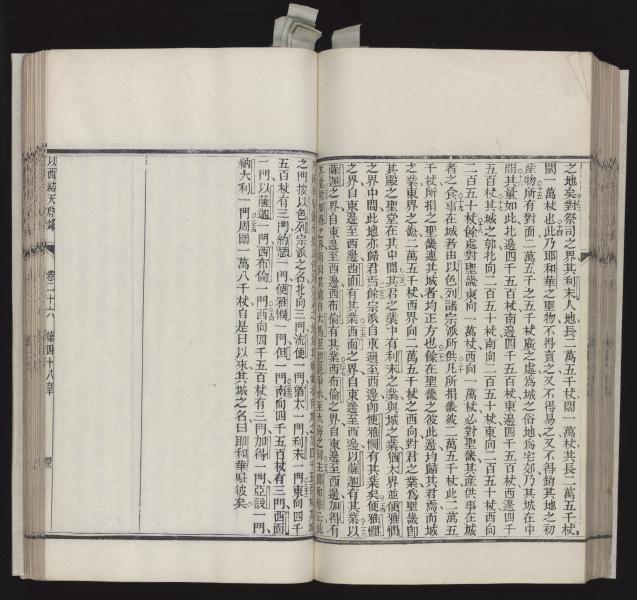 之地矣對祭司之界其利未人地長二萬五千杖闊一萬杖也其長二萬五千杖
闊一萬杖也此乃耶和華之聖物不得賣之又不得易之又不得銷其地之初
產物所有對面二萬五千之五千杖廣之處為城之俗地為宅郊乃其城在中
間其量如此北邊四千五百杖南邊四千五百杖東邊四千五百杖西邊四千
五百杖其城之郭北向二百五十杖南向二百五十杖東向二百五十杖西向
二百五十杖餘處對聖畿東向一萬杖西向一萬杖必對聖畿其產供事在城
者之食事在城者由以色列諸宗派所供凡所捐畿彼二萬五千杖此二萬五
千杖所捐之聖畿連其城者均正方也餘在聖畿之彼此邊均歸其君焉而城
之業東界之畿二萬五千杖西界向二萬五千杖之西向對君之業為聖畿即
其殿之聖堂在其中間其君之業中有利未之業與城之業猶大界並便雅憫
之界中間此地亦歸君焉餘宗派自東邊至西邊即便雅憫有其業矣便雅憫
之界自東邊至西邊西面有其業西面之界自東邊至西邊以薩迦有其業以
薩迦之界自東邊至西邊西布倫有其業西布倫之界自東邊至西邊加得有
之門按以色列宗派之名北向三門流便一門猶大一門利未一門東向四千
五百杖有三門約瑟一門便雅憫一門但一門南向四千五百杖有三門西面
一門以薩迦一門西布倫一門西向四千五百杖有三門加得一門亞設一門
納大利一門周圍一萬八千杖自是日以來其城之名曰耶和華駐彼矣
以西結天啓錄 卷二十六 第四十八章